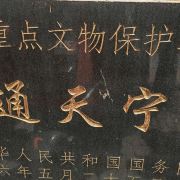 重点文物保护
通天宁
华人民共和国国务
年五月